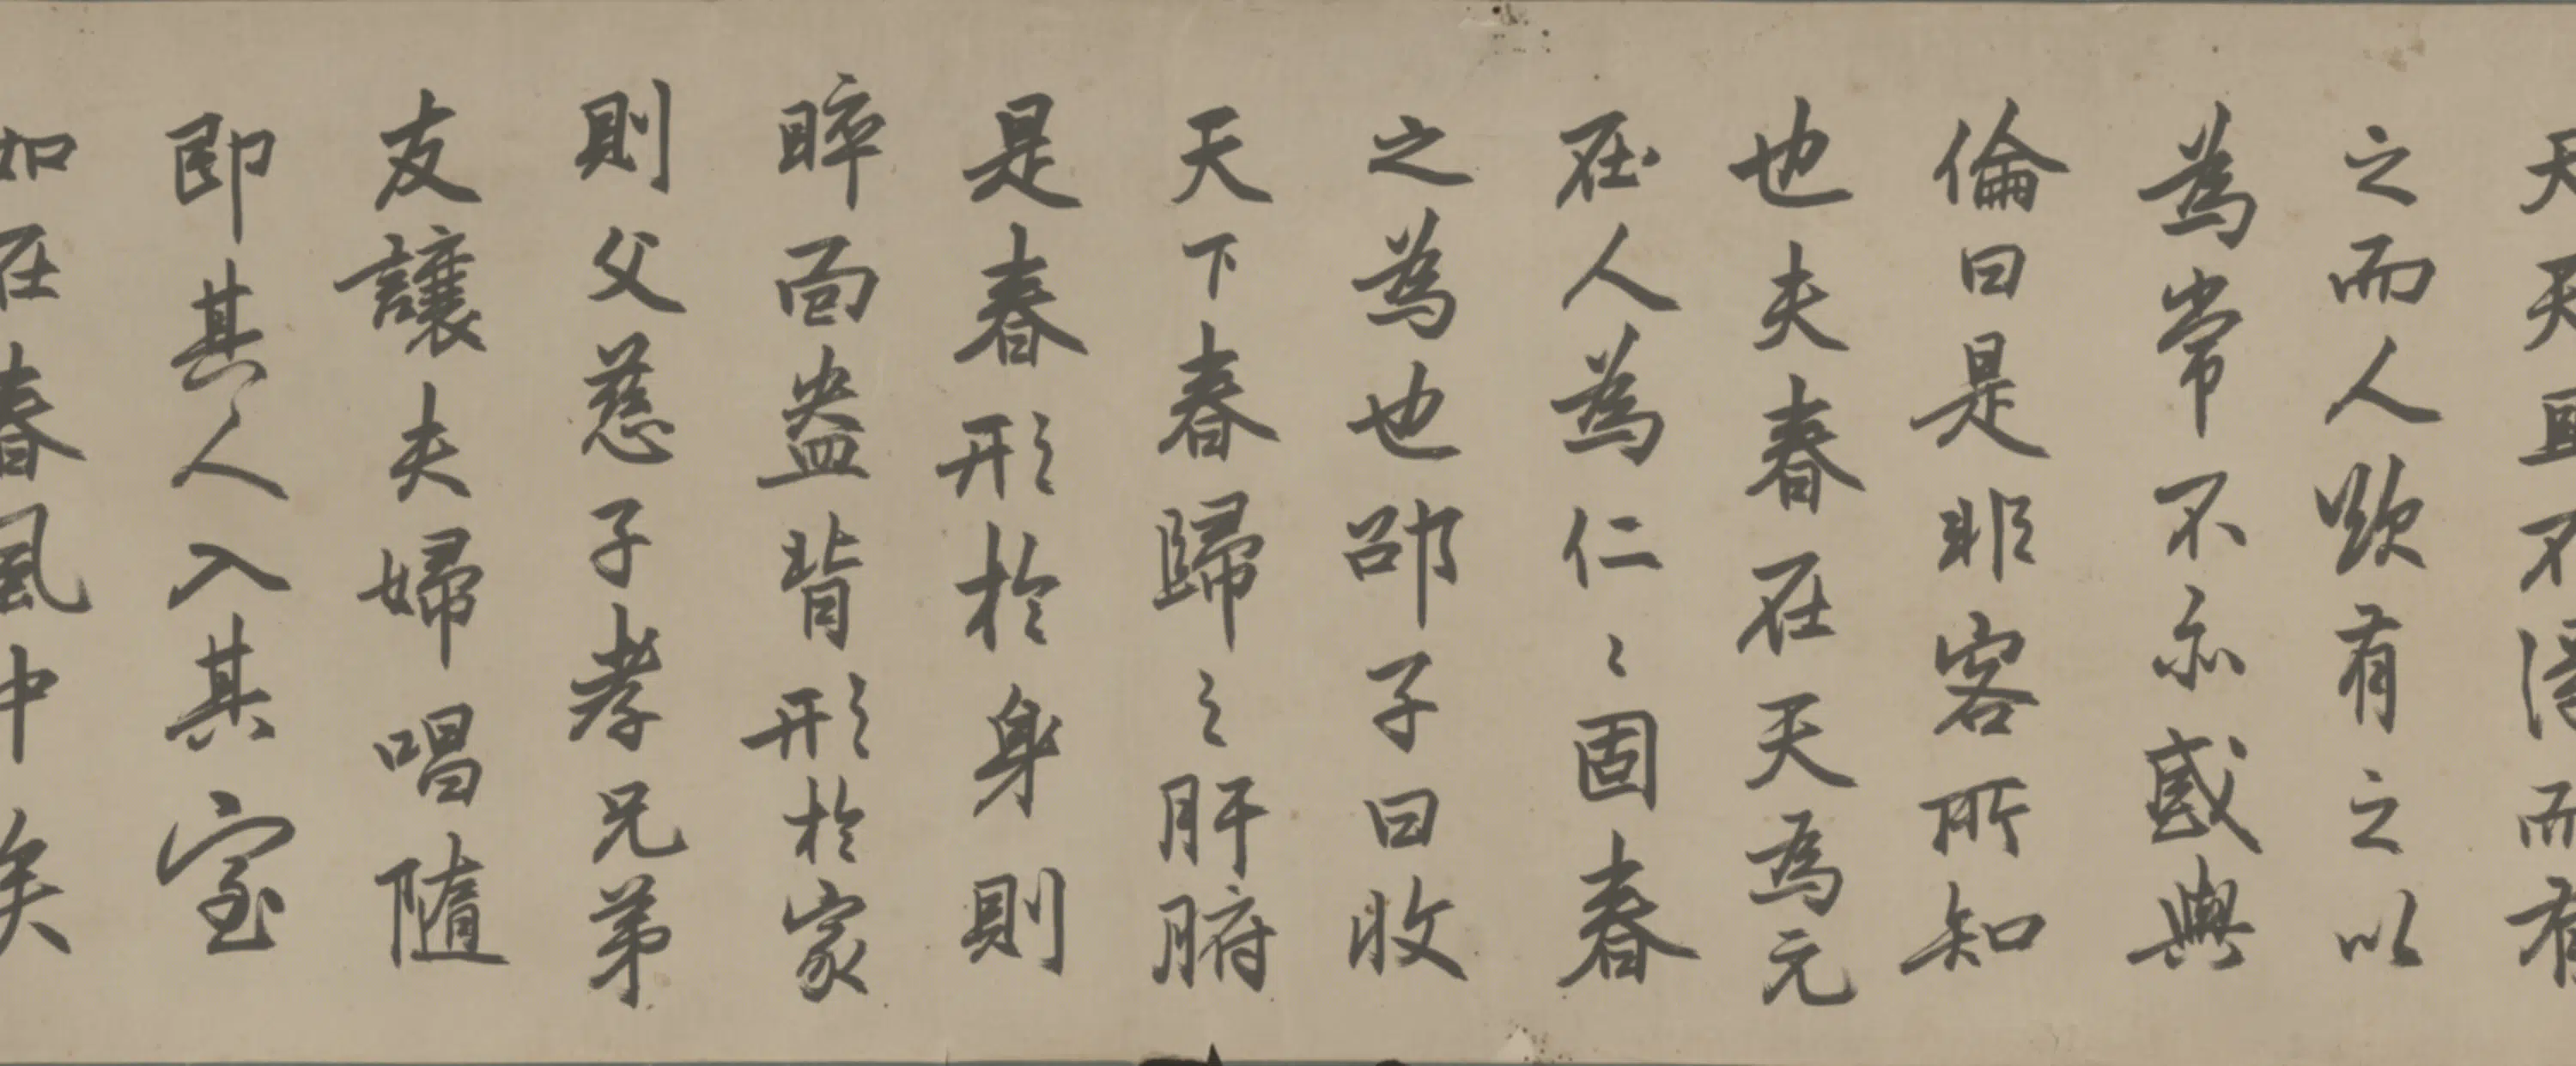 天天且不得而有
之而人欲有之以
為常不亦惑與
倫曰是非客所知
也夫春在天為元
在人為仁〻固春
之為也邵子曰收
天下春歸之肝腑
是春形於身則
睟面盎背形於家
則父慈子孝兄弟
友讓夫婦唱隨
即其人入其室
如在春風中矣